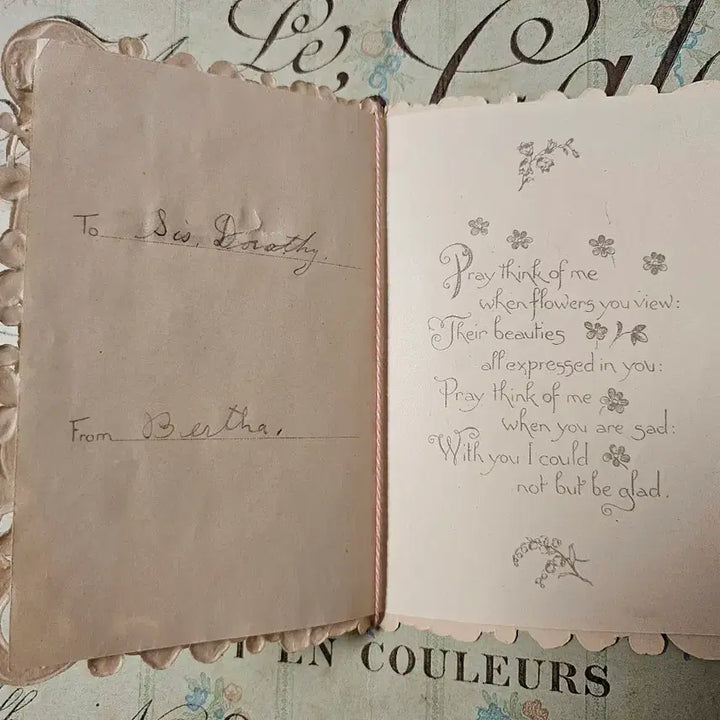 Le Cal
To Sis. Dorothy.
From Bertha.
Pray think of me
when flowers you view:
Their beauties
all expressed in you:
Pray think of me
when you are sad:
With you I could
not but be glad.
EN COULEURS